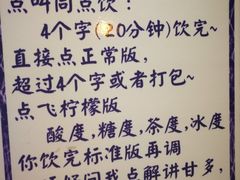 点叫同点饮:
4个字(20分钟)饮完~
直接点正常版,
超过4个字或者打包~
点飞柠檬版
酸度,糖度,茶度,冰度
你饮完标准版再调
问我点解讲甘多,